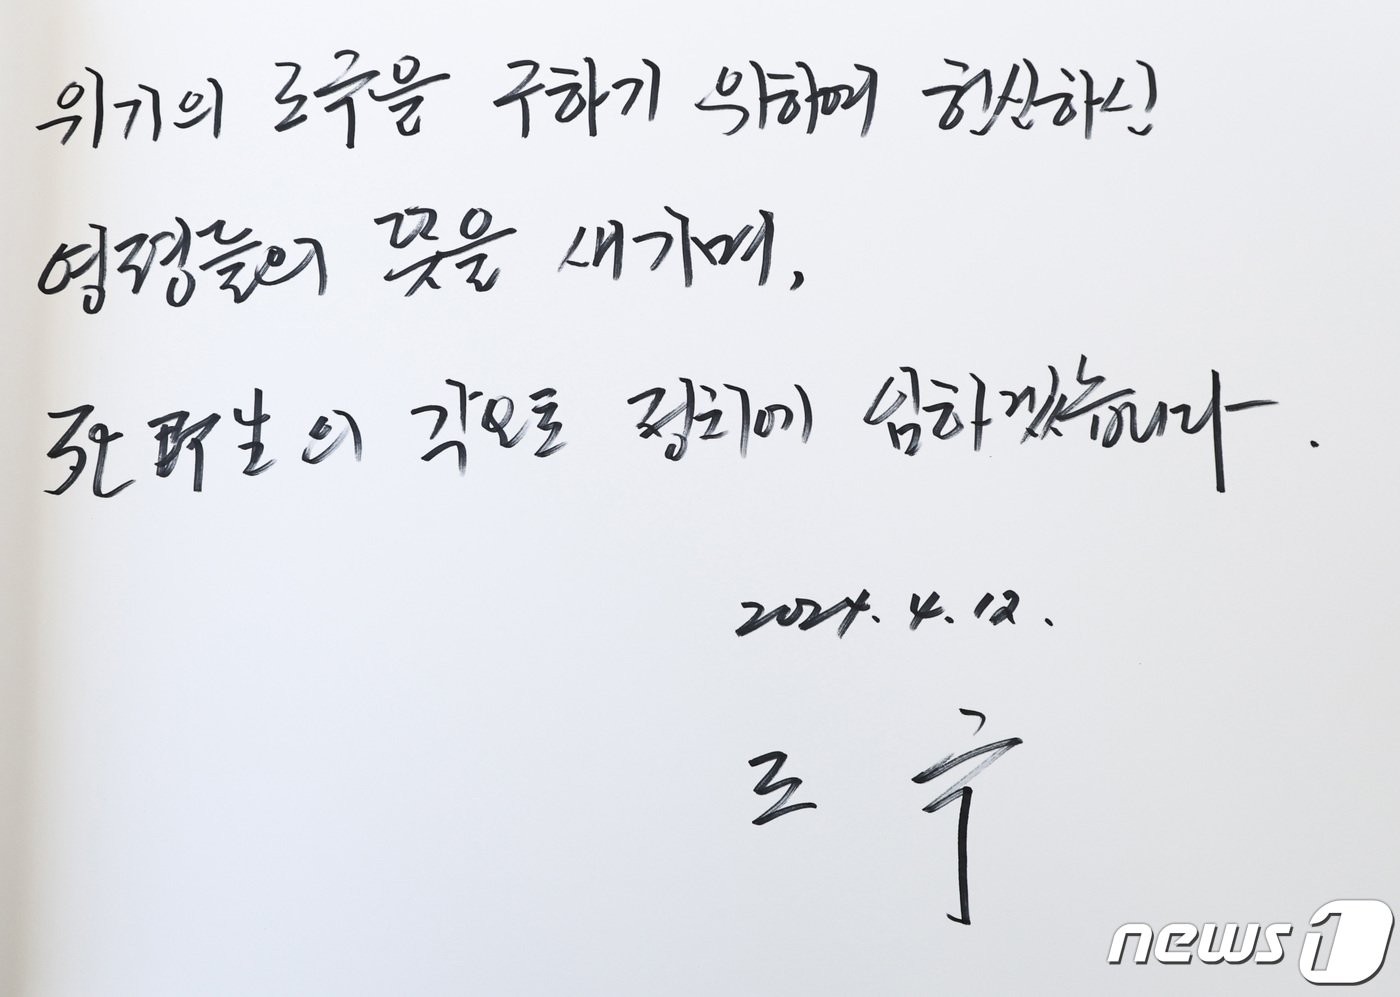 위기의 조국을 구하기 위하여 헌신하신
영령들의 뜻을 새기며,
死即生의 각오로 정치에 임하겠습니다.
2024. 4. 12.
조 국
news1